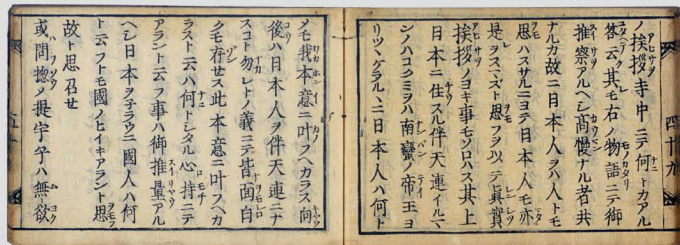 ノ挨拶寺中ニテ何トカアル
答云其モ右ノ物語ニテ御
推察アルヘシ高慢ナル者共
ナルカ故ニ日本人ヲハ人トモ
思ハスサルニヨテ日本人モ亦
是ヲスマズト思フヲ以テ眞實
挨拶ノヨキ事モソロハス其上
日本ニ住スル伴天連イルマ
ンノハコクミヲハ南蠻ノ帝王ヨ
リツヽケラルヽニ日本人ハ何ト
四十九
メモ我本意ニ叶フヘカラス向
後ハ日本人ヲ伴天連ニナ
スコト勿レトノ義ニテ皆面白
クモ存セス此本意ニ叶フヘカ
ラスト云ハ何トシタル心持ニテ
アラント云フ事ハ御推量アル
ヘシ日本ヲ子ラウニ國人ハ何
ト云フトモ國ノヒイキアラント思
故ト思召セ
或問惣〆提宇子ハ無欲